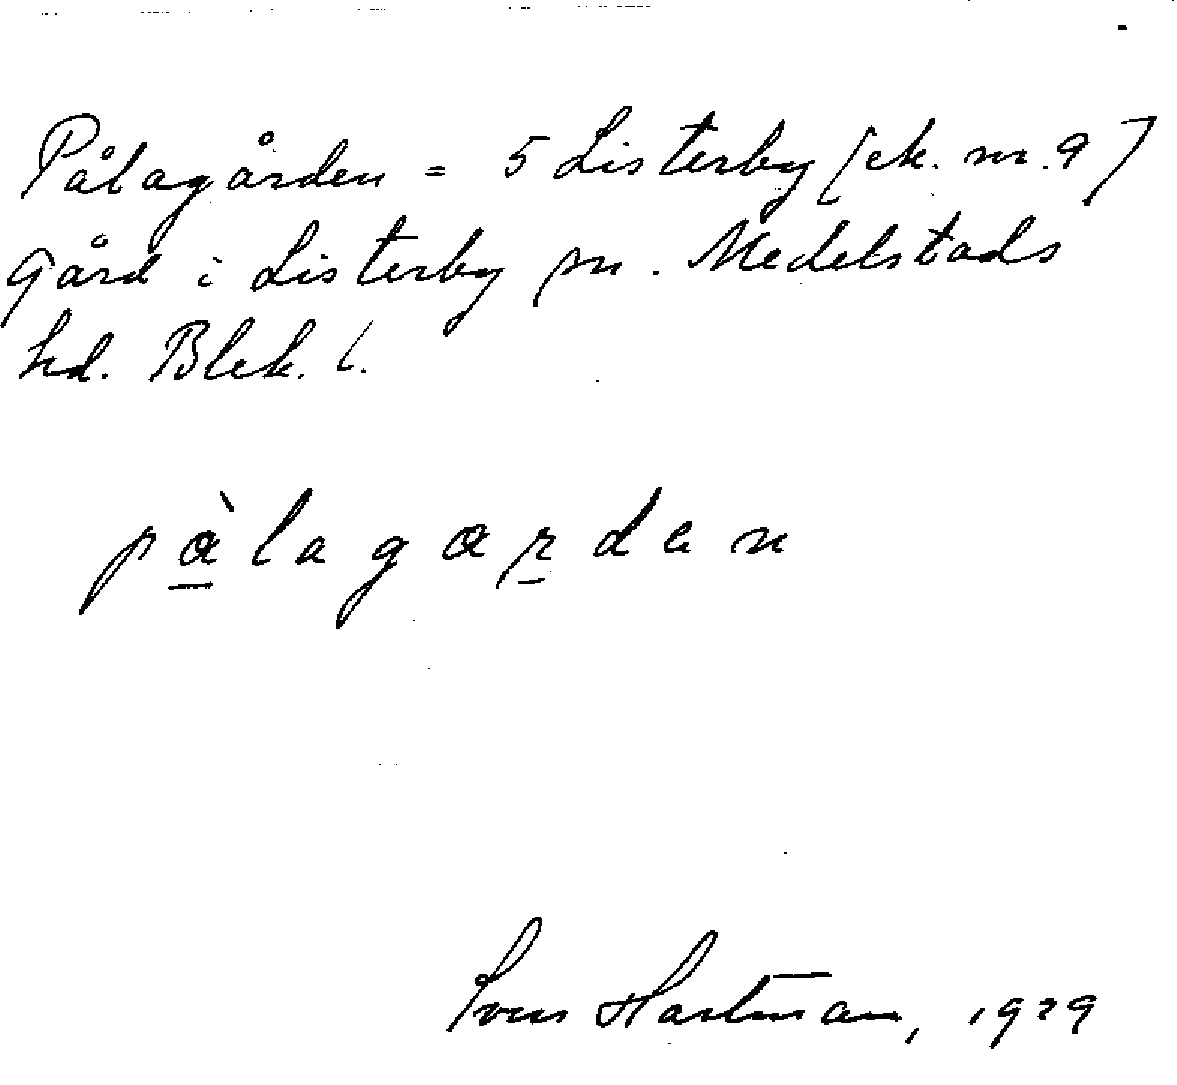 Pålagården = 5 Listerby [ek. nr. 9]
gård i Listerby sn. Medelstads
hd. Blek. l.
pàlagarden
Sven Hartman, 1929